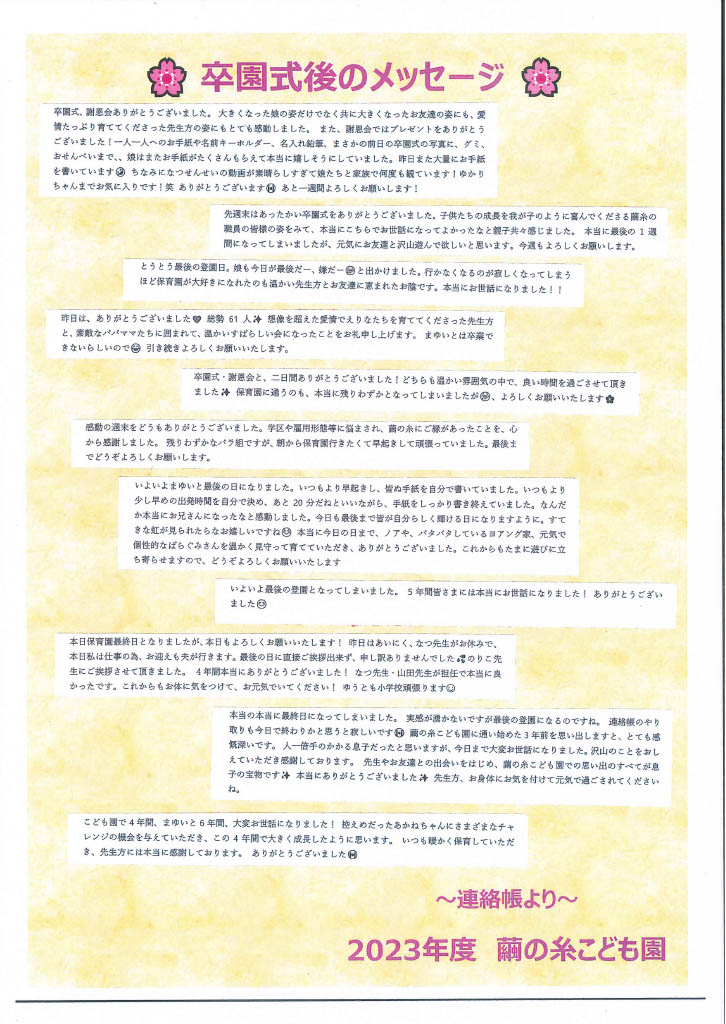 卒園式後のメッセージ
卒園式、謝恩会ありがとうございました。 大きくなった娘の姿だけでなく共に大きくなったお友達の姿にも、愛
情たっぷり育ててくださった先生方の姿にもとても感動しました。 また、謝恩会ではプレゼントをありがとう
ございました！一人一人へのお手紙や名前キーホルダー、名入れ鉛筆、まさかの前日の卒園式の写真に、グミ、
おせんべいまで、、娘はまたお手紙がたくさんもらえて本当に嬉しそうにしていました。昨日また大量にお手紙
を書いています ちなみになつせんせいの動画が素晴らしすぎて娘たちと家族で何度も観ています！ゆかり
ちゃんまでお気に入りです！笑 ありがとうございます あと一週間よろしくお願いします！
先週末はあったかい卒園式をありがとうございました。子供たちの成長を我が子のように喜んでくださる繭糸の
職員の皆様の姿をみて、本当にこちらでお世話になってよかったなと親子共々感じました。 本当に最後の１週
間になってしまいましたが、元気にお友達と沢山遊んで欲しいと思います。今週もよろしくお願いします。
とうとう最後の登園日。娘も今日が最後だー、嫌だー と出かけました。行かなくなるのが寂しくなってしまう
ほど保育園が大好きになれたのも温かい先生方とお友達に恵まれたお陰です。本当にお世話になりました！！
昨日は、ありがとうございました 総勢 61 人✨ 想像を超えた愛情でえりなたちを育ててくださった先生方
と、素敵なパパママたちに囲まれて、温かいすばらしい会になったことをお礼申し上げます。 まゆいとは卒業で
きないらしいので 引き続きよろしくお願いいたします。
卒園式・謝恩会と、二日間ありがとうございました！どちらも温かい雰囲気の中で、良い時間を過ごさせて頂き
ました✨ 保育園に通うのも、本当に残りわずかとなってしまいましたが 、よろしくお願いいたします
感動の週末をどうもありがとうございました。学区や雇用形態等に悩まされ、繭の糸にご縁があったことを、心
から感謝しました。 残りわずかなバラ組ですが、朝から保育園行きたくて早起きして頑張っていました。最後ま
でどうぞよろしくお願いします。
いよいよまゆいと最後の日になりました。いつもより早起きし、皆ぬ手紙を自分で書いていました。いつもより
少し早めの出発時間を自分で決め、あと 20 分だねといいながら、手紙をしっかり書き終えていました。なんだ
か本当にお兄さんになったなと感動しました。今日も最後まで皆が自分らしく輝ける日になりますように。すて
きな虹が見られたらなお嬉しいですね 本当に今日の日まで、ノアや、バタバタしているヨアング家、元気で
個性的なばらぐみさんを温かく見守って育てていただき、ありがとうございました。これからもたまに遊びに立
ち寄らせますので、どうぞよろしくお願いいたします
いよいよ最後の登園となってしまいました。 ５年間皆さまには本当にお世話になりました！ ありがとうござい
ました
本日保育園最終日となりましたが、本日もよろしくお願いいたします！ 昨日はあいにく、なつ先生がお休みで、
本日私は仕事の為、お迎えも夫が行きます。最後の日に直接ご挨拶出来ず、申し訳ありませんでした💦のりこ先
生にご挨拶させて頂きました。 ４年間本当にありがとうございました！ なつ先生・山田先生が担任で本当に良
かったです。これからもお体に気をつけて、お元気でいてください！ ゆうとも小学校頑張ります
本当の本当に最終日になってしまいました。 実感が湧かないですが最後の登園になるのですね。 連絡帳のやり
取りも今日で終わりかと思うと寂しいです 繭の糸こども園に通い始めた３年前を思い出しますと、とても感
慨深いです。 人一倍手のかかる息子だったと思いますが、今日まで大変お世話になりました。沢山のことをおし
えていただき感謝しております。 先生やお友達との出会いをはじめ、繭の糸こども園での思い出のすべてが息
子の宝物です✨ 本当にありがとうございました✨ 先生方、お身体にお気を付けて元気で過ごされてください
ね。
こども園で４年間、まゆいと６年間、大変お世話になりました！ 控えめだったあかねちゃんにさまざまなチャ
レンジの機会を与えていただき、この４年間で大きく成長したように思います。 いつも暖かく保育していただ
き、先生方には本当に感謝しております。 ありがとうございました
～連絡帳より～
2023年度 繭の糸こども園